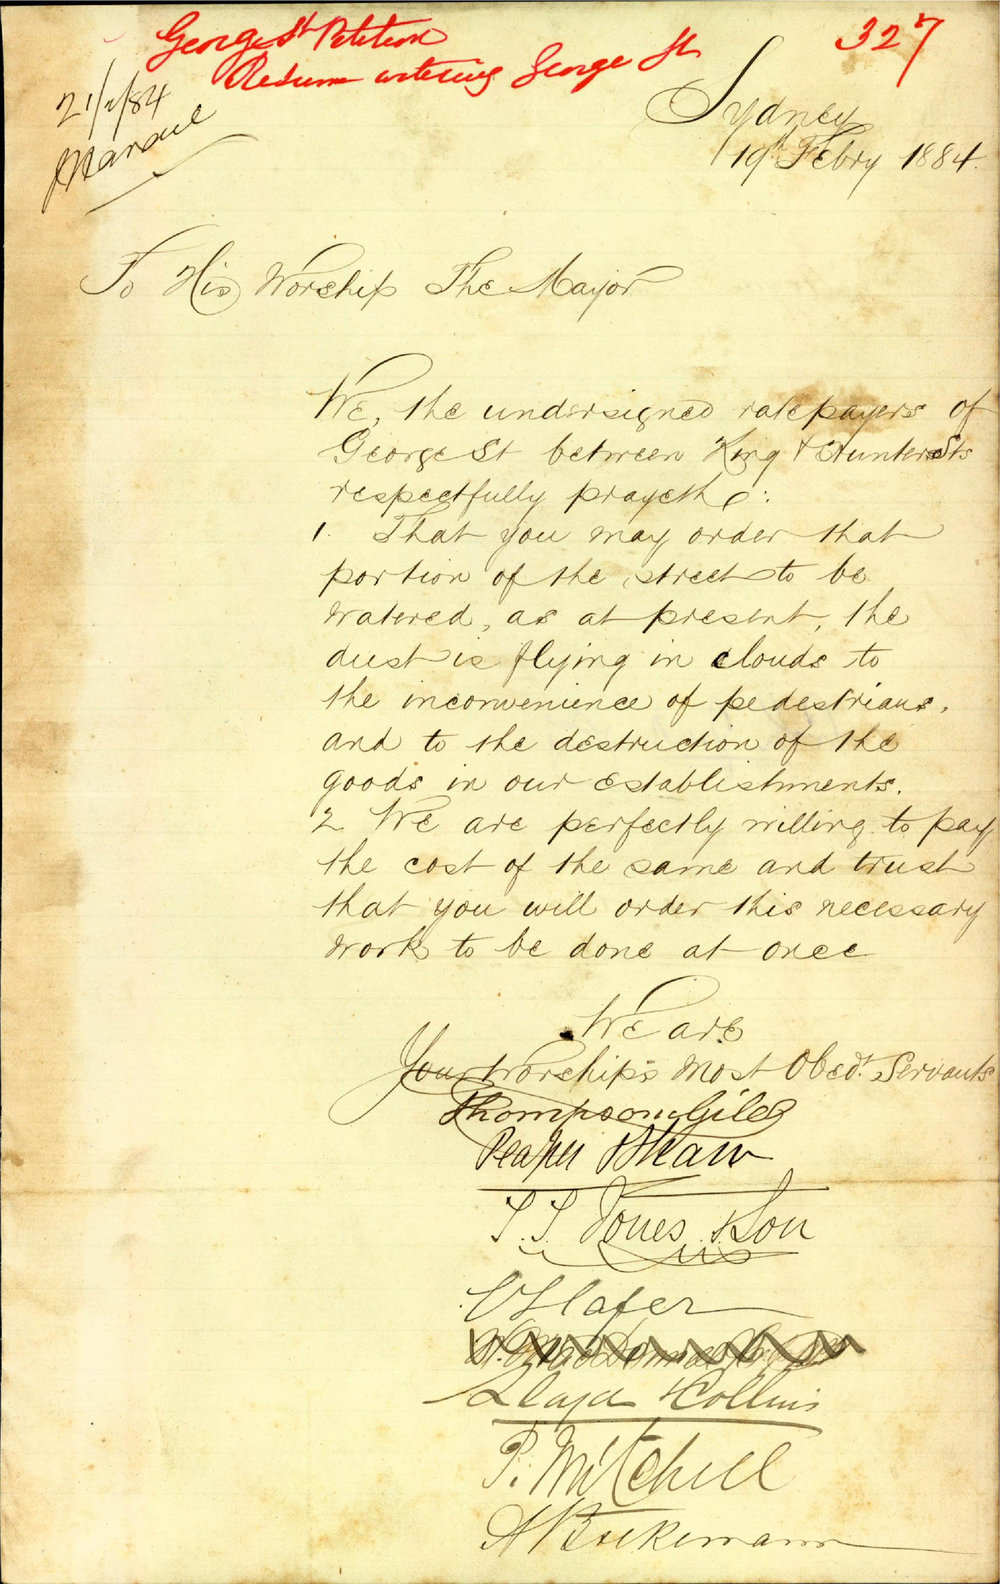 George St Petition
327
Resume watering George St
21/2/84
Sydney
19th Febry 1884.
To His Worship The Mayor
We, the undersigned ratepayers of
George St between King & Hunter Sts
respectfully prayeth:
1. That you may order that
portion of the street to be
watered, as at present, the
dust is flying in clouds to
the inconvenience of pedestrians,
and to the destruction of the
goods in our establishments.
2 We are perfectly willing to pay
the cost of the same and trust
that you will order this necessary
work to be done at once
We are
Your Worship's Most Obedt. Servants
Thompson & Giles
Peaper & Shaw
T. T. Jones & Son
Lloyd & Collins
P. Mitchell